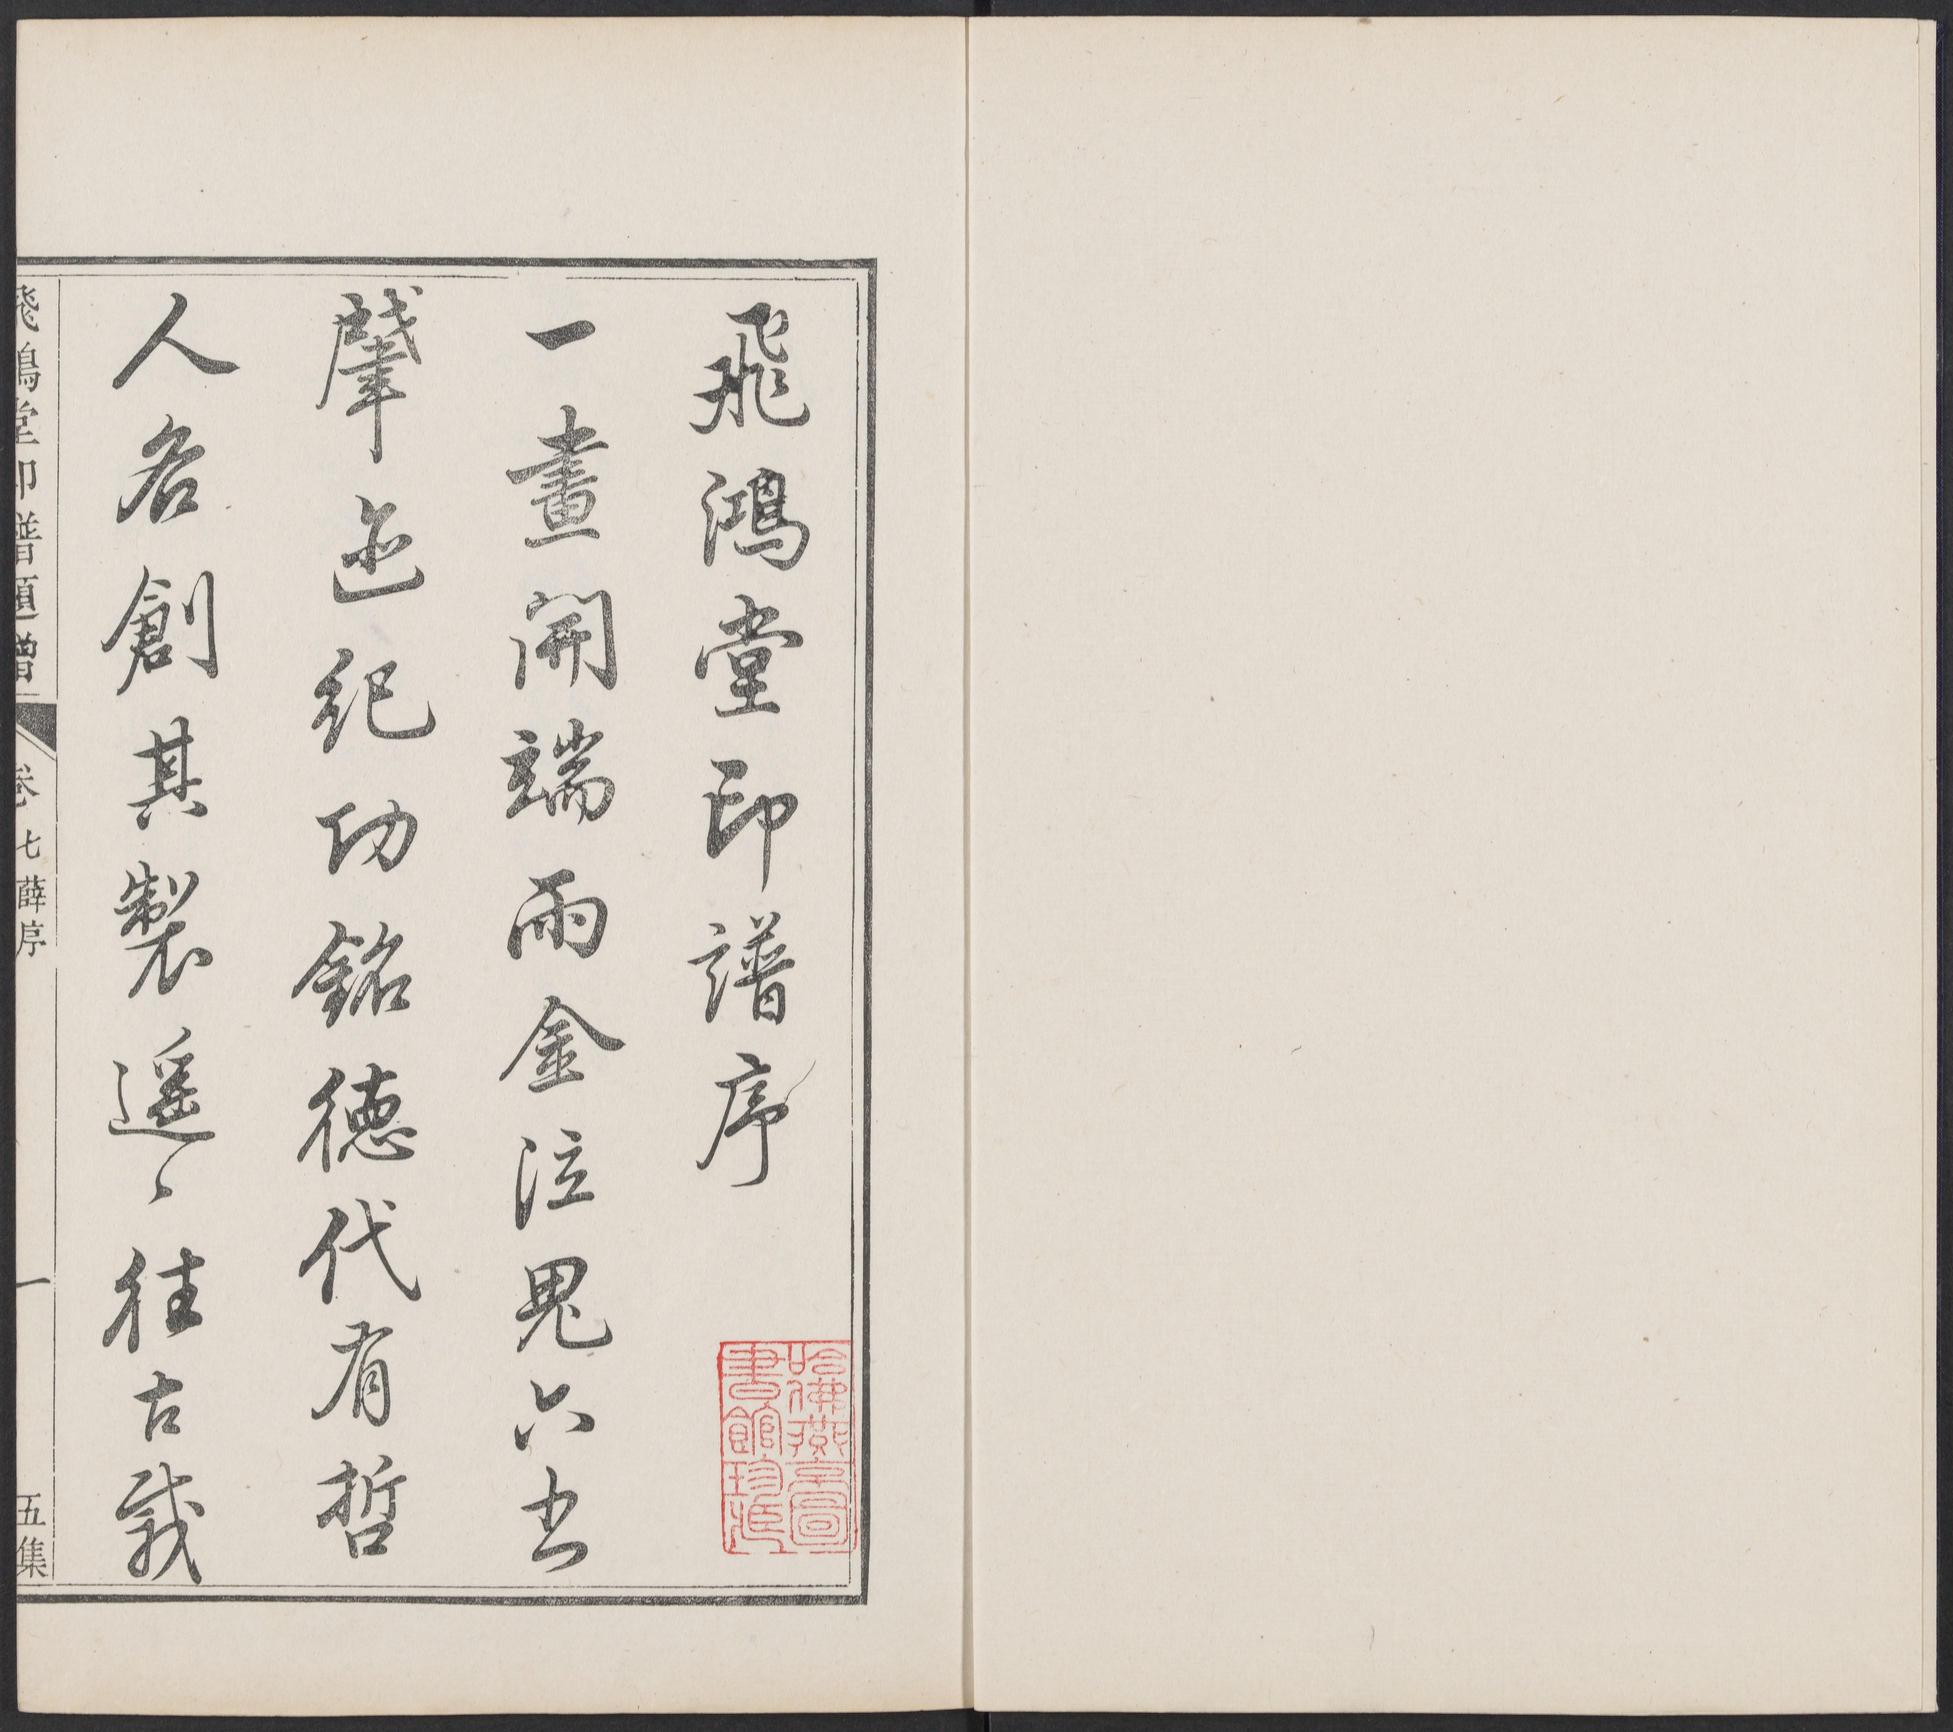 飛鴻堂印譜序
哈佛燕京圖
書館珍藏
一畫開端雨金泣鬼六书
肈迹紀功銘德代有哲
人各創其製遥〻往古
飛鴻堂印譜題贈 卷七薛序 一 五集